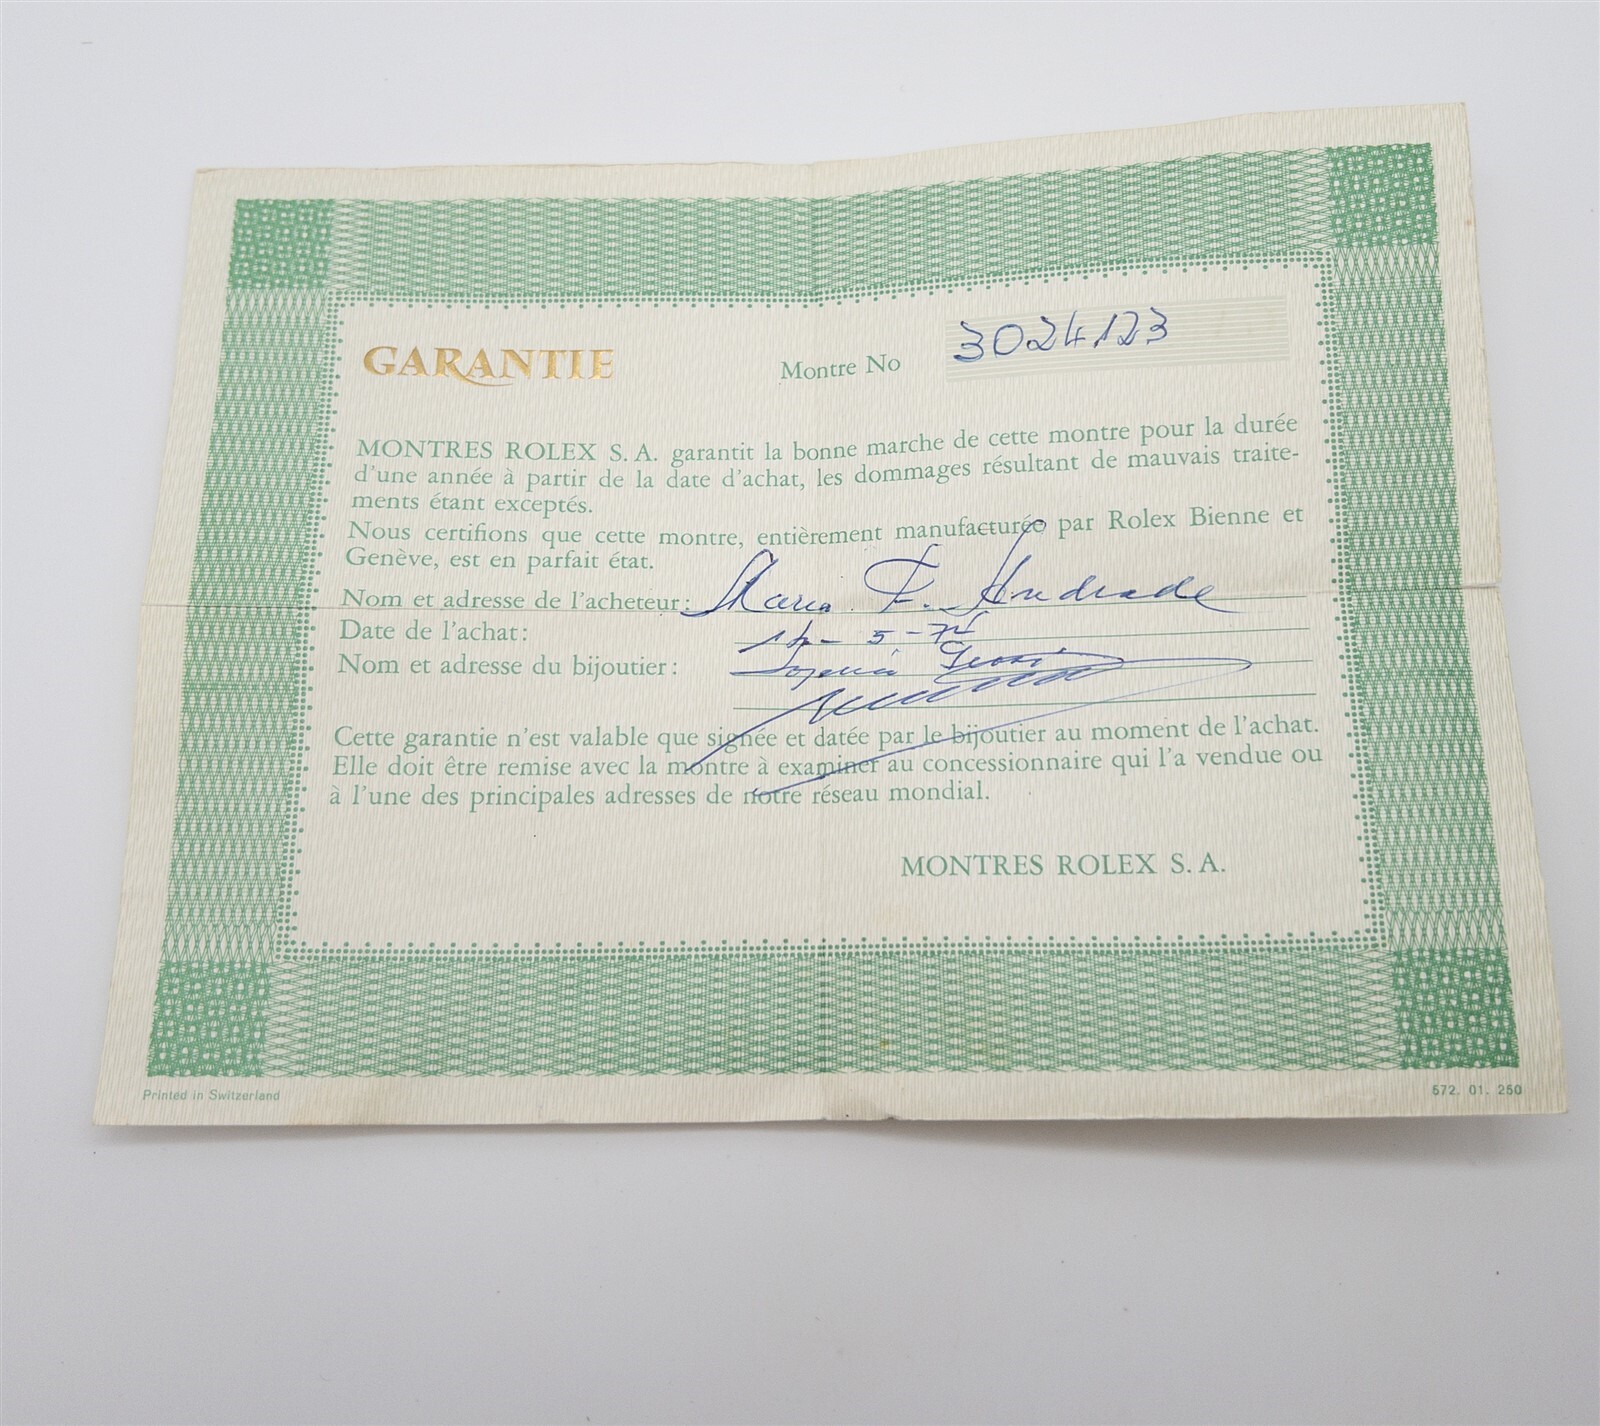 GARANTIE Montre No 3024123
MONTRES ROLEX S. A. garantit la bonne marche de cette montre pour la durée
d'une année à partir de la date d'achat, les dommages résultant de mauvais traite-
ments étant exceptés.
Nous certifions que cette montre, entièrement manufacturée par Rolex Bienne et
Genève, est en parfait état.
Nom et adresse de l'acheteur: F. Andrade
Date de l'achat:
Nom et adresse du bijoutier:
Cette garantie n'est valable que signée et datée par le bijoutier au moment de l'achat.
Elle doit être remise avec la montre à examiner au concessionnaire qui l'a vendue ou
à l'une des principales adresses de notre réseau mondial.
MONTRES ROLEX S. A.
Printed in Switzerland 572. 01. 250